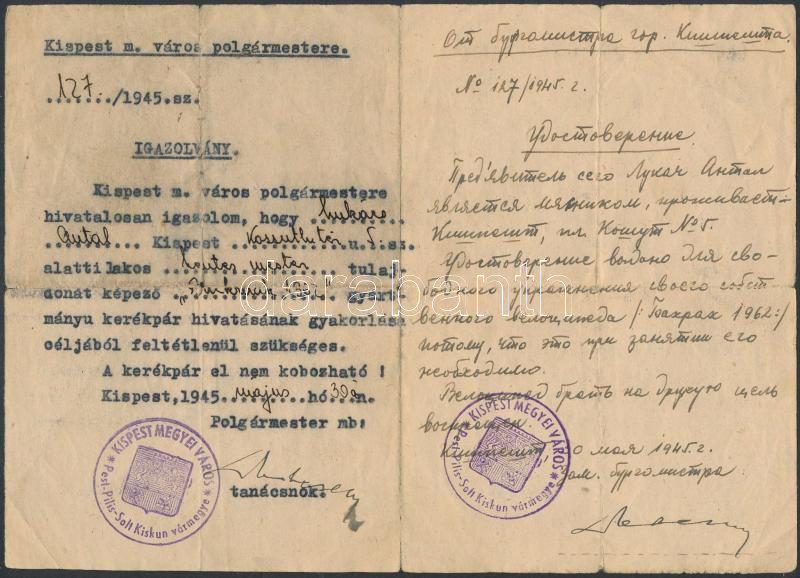 Kispest m. város polgármestere.
127/1945.sz.
IGAZOLVÁNY.
Kispest m. város polgármestere
hivatalosan igazolom, hogy Lukács
Antal Kispest Kossuth tér u. 5. sz.
alatti lakos tulaj
donát képező gyárt
mányu kerékpár hivatásának gyakorlása
céljából feltétlenül szükséges.
A kerékpár el nem kobozható !
Kispest,1945 május hó 30 n.
Polgármester mb:
tanácsnok.
KISPEST MEGYEI VÁROS
Pest-Pilis-Solt Kiskun vármegye
От бургомистра гор. Кишпешта.
№ 127/1945. г.
Удостоверение.
Пред'явитель сего Лукач Антал
является мясником, проживает:
Кишпешт, пл. Кошут № 5.
Удостоверение выдано для сво-
бодного употребления своего собст-
венного велосипеда /: Бахрах 1962:/
потому, что это при занятии его
необходимо.
Велосипед брать на другую цель
воспрещен.
Кишпешт, 30 мая 1945 г.
Зам. бургомистра
KISPEST MEGYEI VÁROS
Pest-Pilis-Solt Kiskun vármegye
darabanth